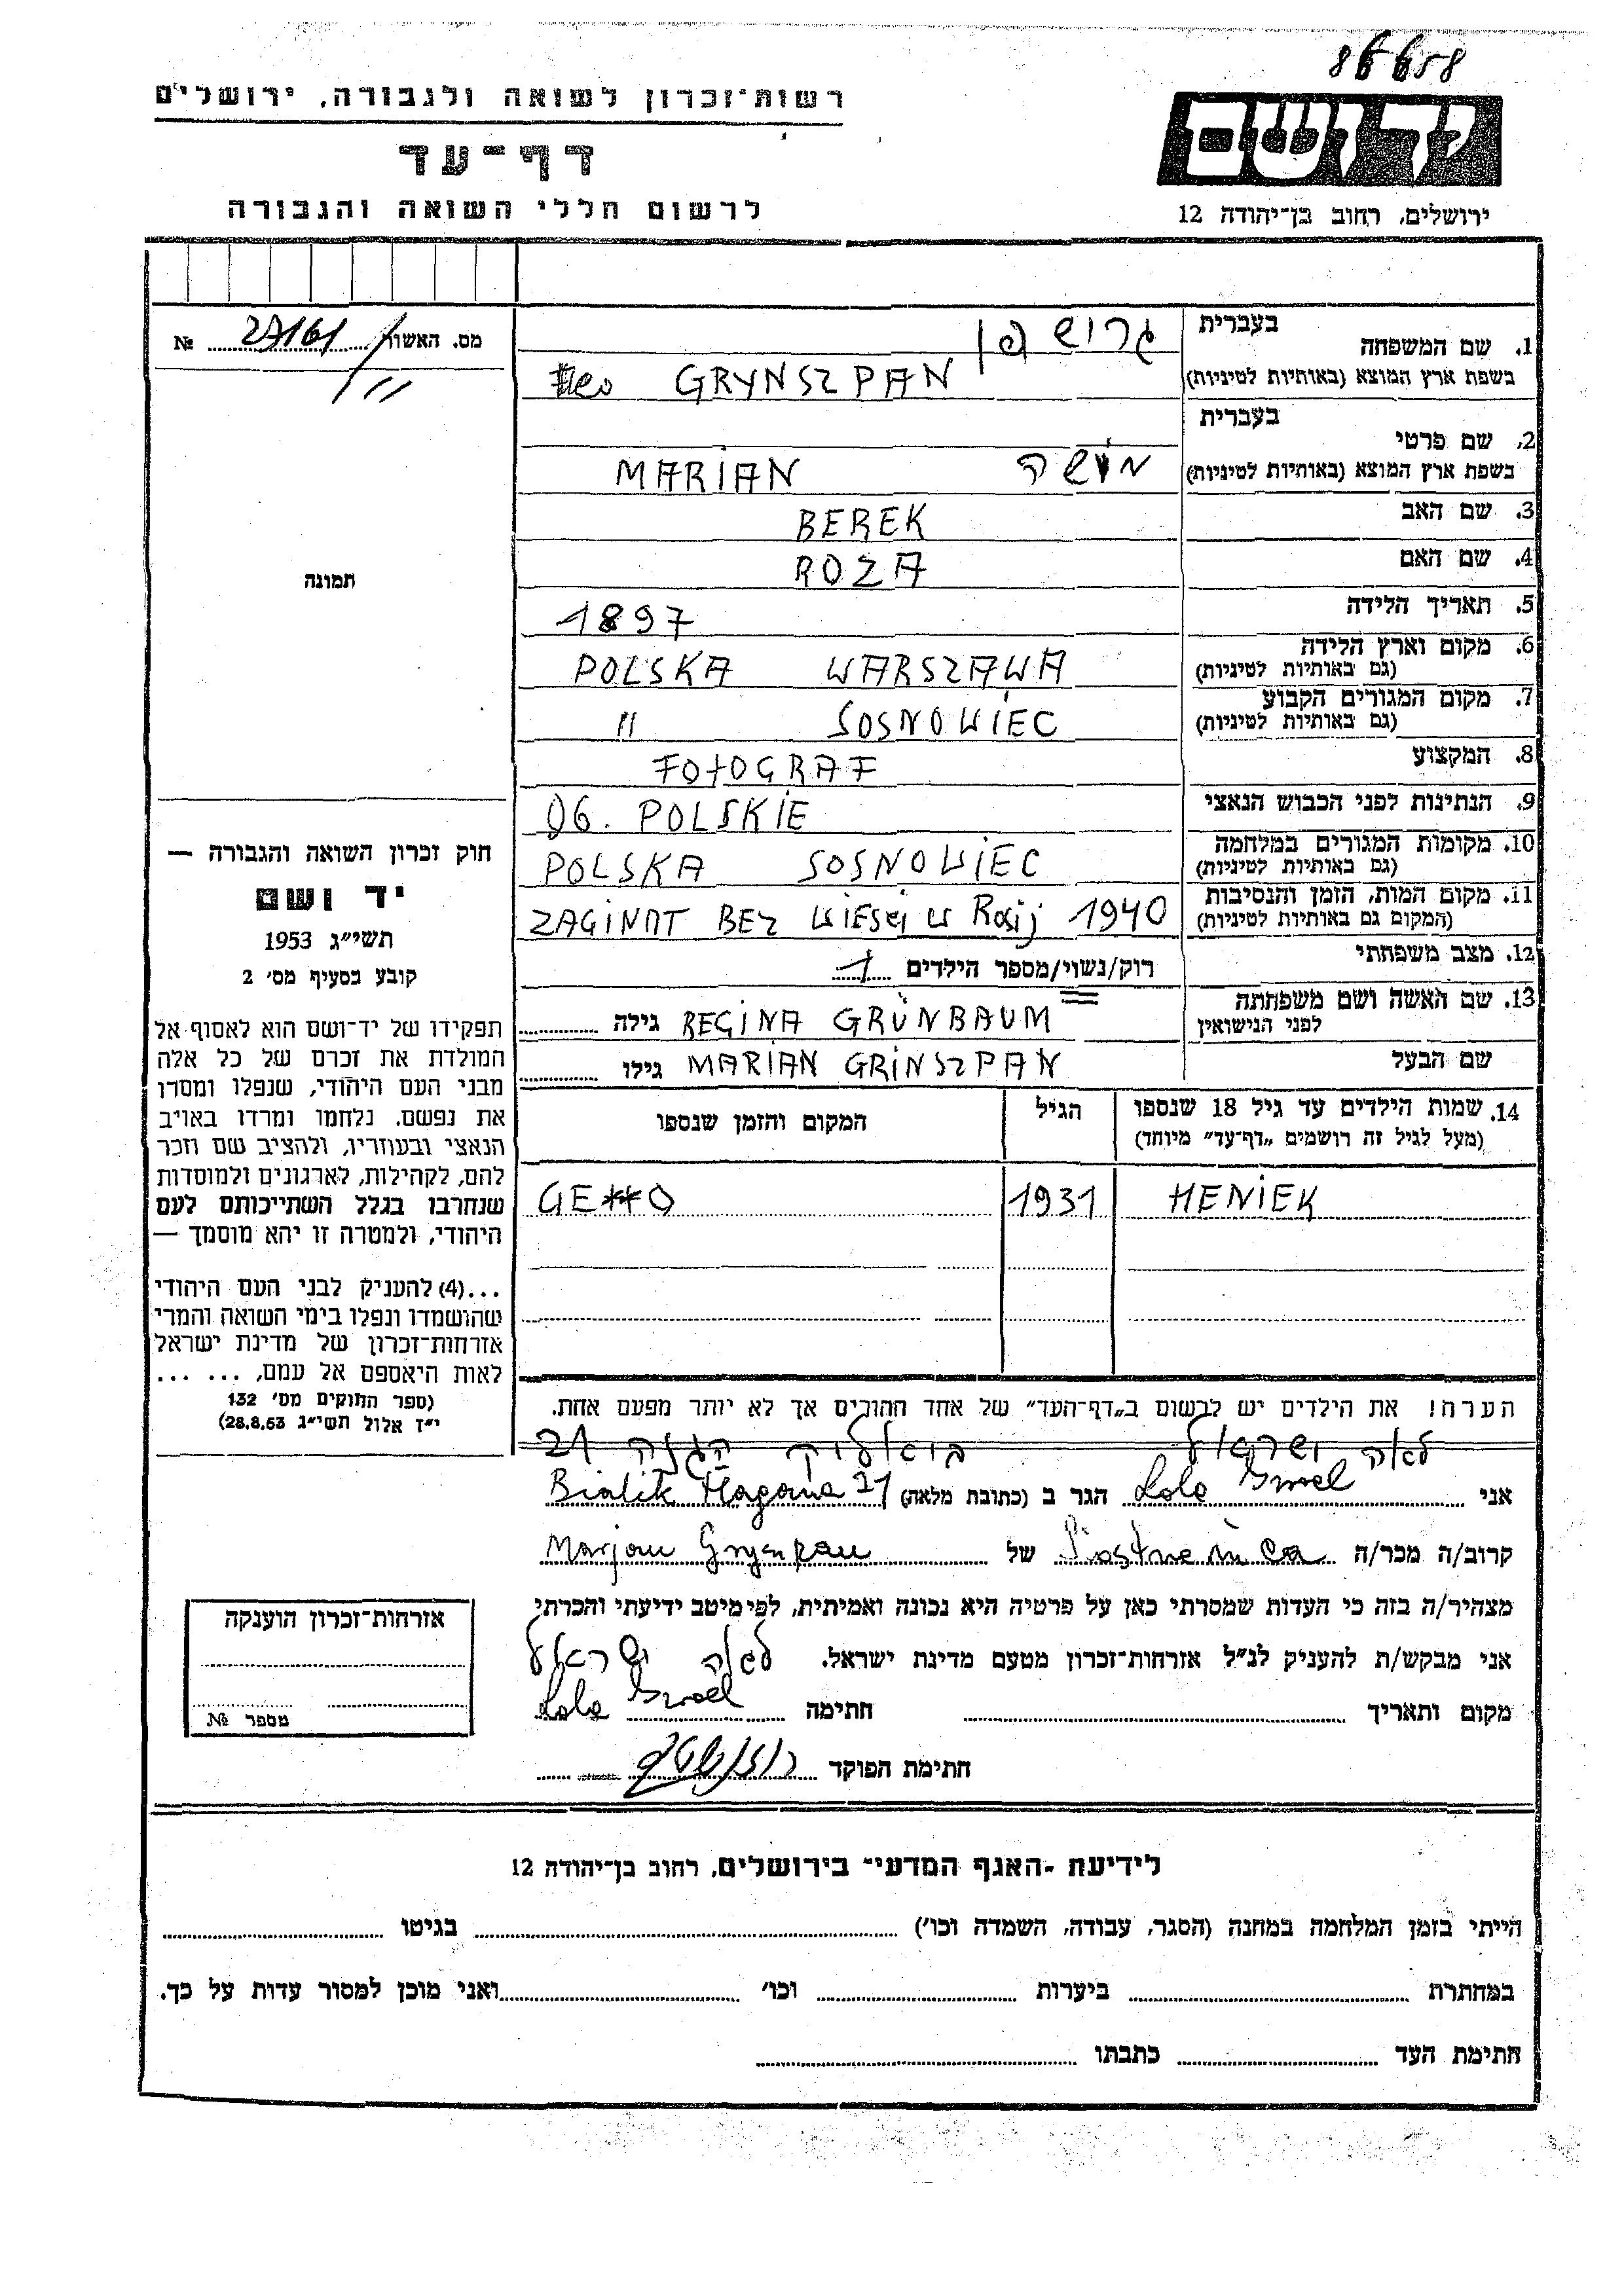 86658
רשות־זכרון לשואה ולגבורה, ירושלים
יד ושם
דף־עד
לרשום חללי השואה והגבורה
ירושלים, רחוב בן־יהודה 12
מס. האשור 27161 №
1. שם המשפחה
בעברית
בשפת ארץ המוצא (באותיות לטיניות) GRYNSZPAN
2. שם פרטי
בעברית
בשפת ארץ המוצא (באותיות לטיניות) משה MARIAN
3. שם האב BEREK
4. שם האם ROZA
5. תאריך הלידה 1897
6. מקום וארץ הלידה
(גם באותיות לטיניות) POLSKA WARSZAWA
7. מקום המגורים הקבוע
(גם באותיות לטיניות) " SOSNOWIEC
8. המקצוע FOTOGRAF
9. הנתינות לפני הכבוש הנאצי OB. POLSKIE
10. מקומות המגורים במלחמה
(גם באותיות לטיניות) POLSKA SOSNOWIEC
11. מקום המות, הזמן והנסיבות
(המקום גם באותיות לטיניות) ZAGINAT BEZ WIESCI W Rosij 1940
12. מצב משפחתי רוק/נשוי/מספר הילדים 1
13. שם האשה ושם משפחתה
לפני הנישואין REGINA GRÜNBAUM גילה
שם הבעל MARIAN GRINSZPAN גילו
14. שמות הילדים עד גיל 18 שנספו
(מעל לגיל זה רושמים „דף־עד" מיוחד)
הגיל
המקום והזמן שנספו
HENIEK 1931 GETTO
תמונה
חוק זכרון השואה והגבורה —
יד ושם
תשי"ג 1953
קובע בסעיף מס' 2
תפקידו של יד־ושם הוא לאסוף אל
המולדת את זכרם של כל אלה
מבני העם היהודי, שנפלו ומסרו
את נפשם, נלחמו ומרדו באויב
הנאצי ובעוזריו, ולהציב שם וזכר
להם, לקהילות, לארגונים ולמוסדות
שנחרבו בגלל השתייכותם לעם
היהודי, ולמטרה זו יהא מוסמך —
...(4) להעניק לבני העם היהודי
שהושמדו ונפלו בימי השואה והמרי
אזרחות־זכרון של מדינת ישראל
לאות היאספם אל עמם, ... ...
(ספר החוקים מס' 132
י"ז אלול תשי"ג 28.8.53)
הערה! את הילדים יש לרשום ב„דף־העד" של אחד ההורים אך לא יותר מפעם אחת.
לאה ישראל ביאליק הגנה 21
אני Lola Israel הגר ב (כתובת מלאה) Bialik Hagana 21
קרוב/ה מכר/ה Siostrzenica של Marjan Grynspan
מצהיר/ה בזה כי העדות שמסרתי כאן על פרטיה היא נכונה ואמיתית, לפי מיטב ידיעתי והכרתי
אני מבקש/ת להעניק לנ"ל אזרחות־זכרון מטעם מדינת ישראל. לאה ישראל
מקום ותאריך חתימה Lola Israel
חתימת הפוקד
אזרחות־זכרון הוענקה
מספר №
לידיעת ־האגף המדעי־ בירושלים, רחוב בן־יהודה 12
הייתי בזמן המלחמה במחנה (הסגר, עבודה, השמדה וכו') בגיטו
במחתרת ביערות וכו' ואני מוכן למסור עדות על כך.
חתימת העד כתבתו